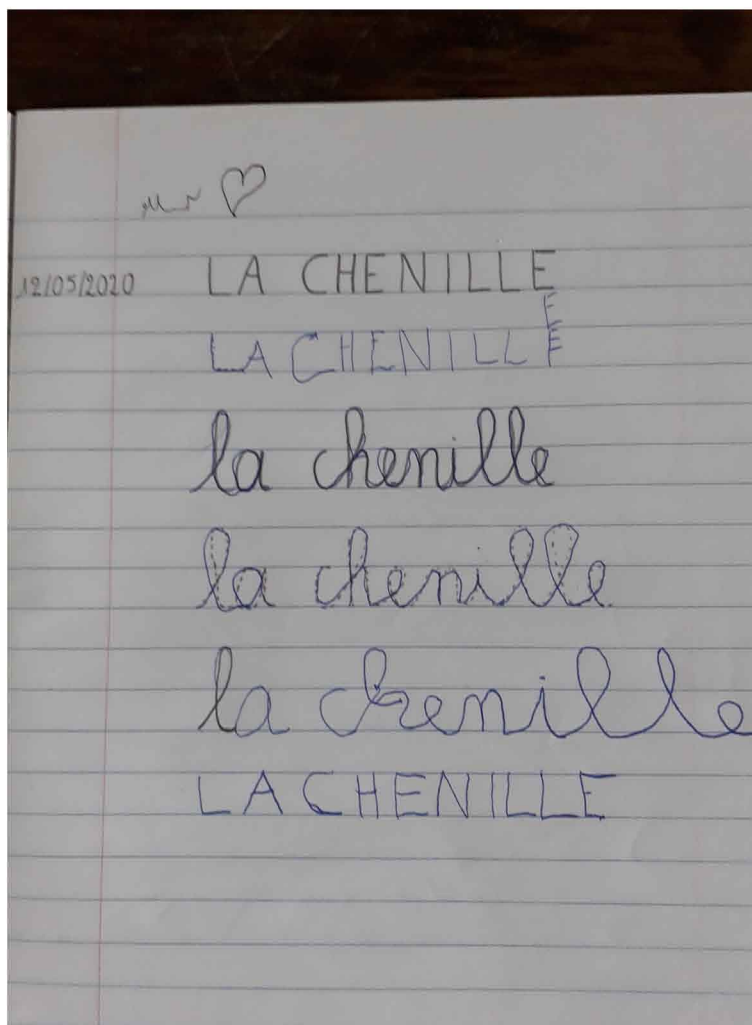 12/05/2020 LA CHENILLE
E
LA CHENILLE
la chenille
la chenille
la chenille
LA CHENILLE